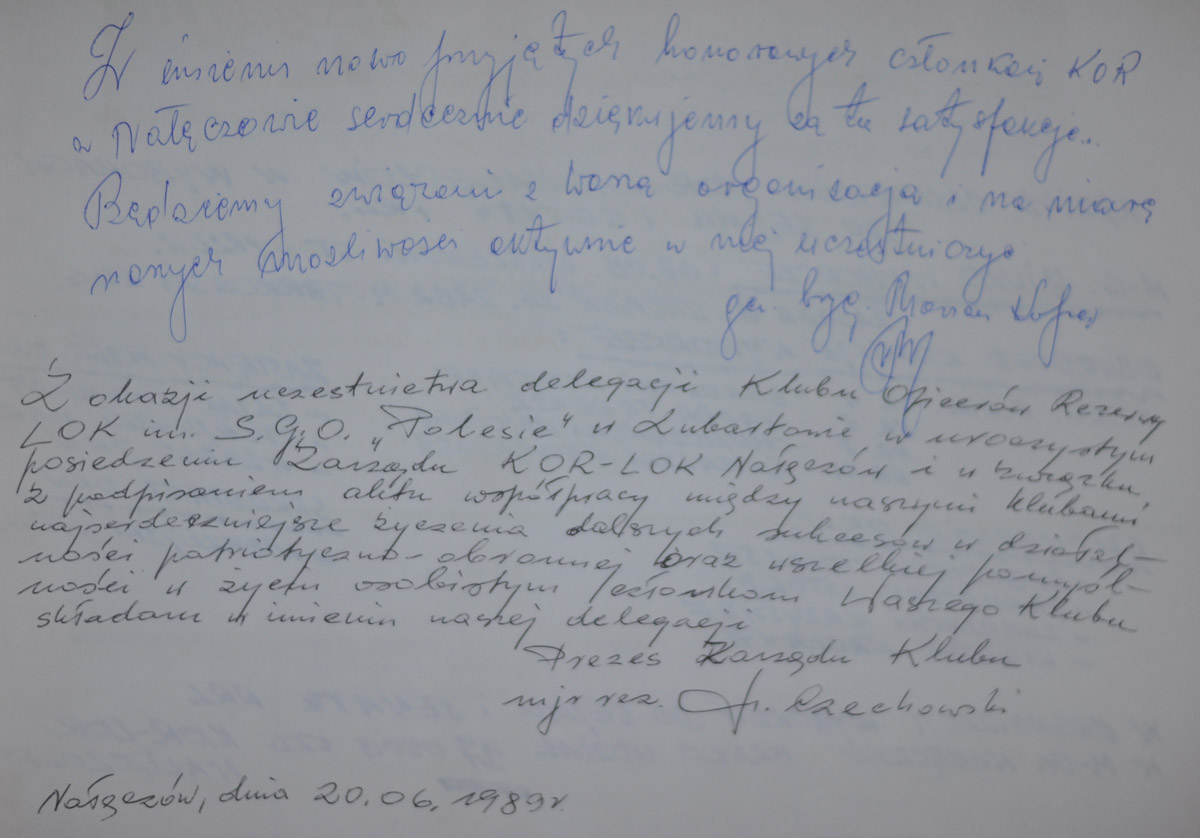 W imieniu nowo przyjętych honorowych członków KOR
w Nałęczowie serdecznie dziękujemy za tę satysfakcję..
Będziemy związani z Waszą organizacją i na miarę
naszych możliwości aktywnie w niej uczestniczyć
gen. bryg. Marian
Z okazji uczestnictwa delegacji Klubu Oficerów Rezerwy
LOK im. S.G.O. „Polesie" w Lubartowie w uroczystym
posiedzeniu Zarządu KOR-LOK Nałęczów i w związku
z podpisaniem aktu współpracy między naszymi Klubami
najserdeczniejsze życzenia dalszych sukcesów w działal-
ności patriotyczno-obronnej oraz wszelkiej pomyśl-
ności w życiu osobistym członkom Waszego Klubu
składam w imieniu naszej delegacji
Prezes Zarządu Klubu
mjr rez. Czechowski
Nałęczów, dnia 20.06.1989r.